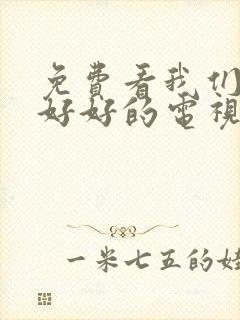 免費看我们
好好的電視
一米七五的娃